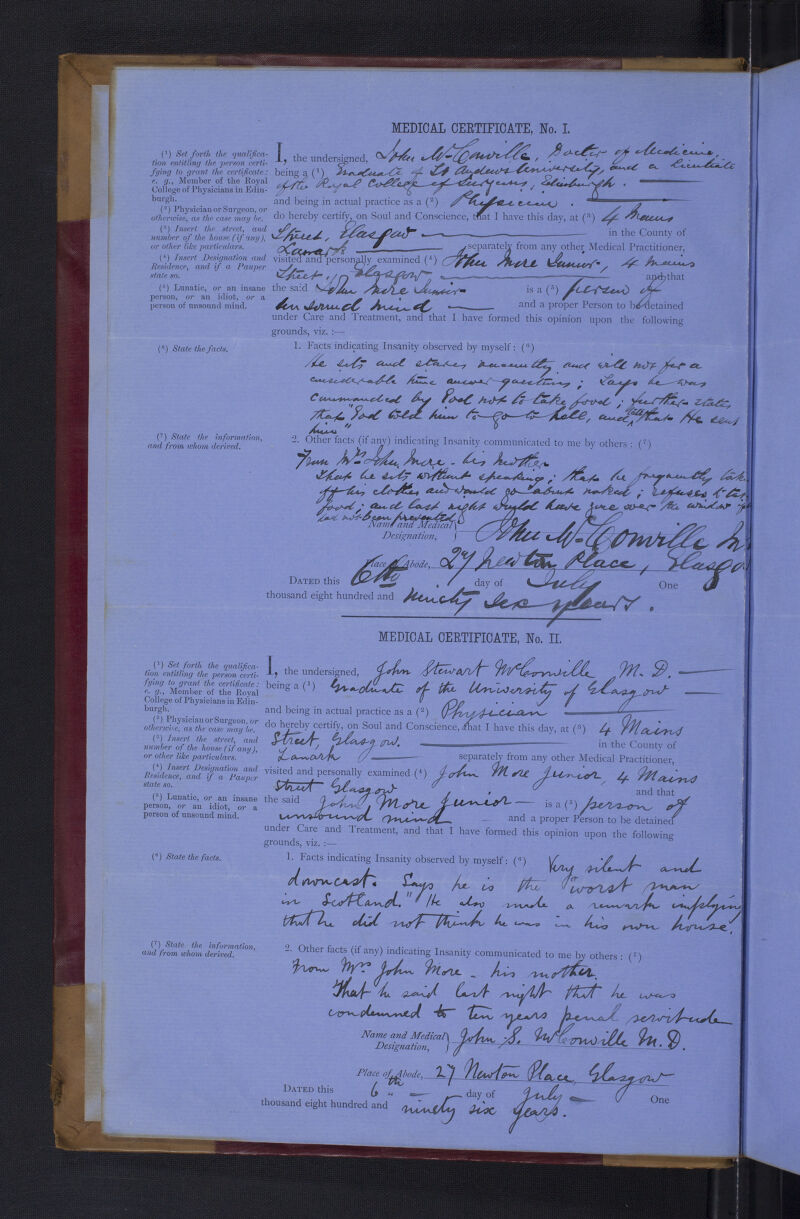 MEDICAL CERTIFICATE, No. I.
(¹) Set forth the qualifica-
tion entitling the person certi-
fying to grant the certificate:
e. g., Member of the Royal
College of Physicians in Edin-
burgh.
(²) Physician or Surgeon, or
otherwise, as the case may be.
(³) Insert the street, and
number of the house (if any),
or other like particulars.
(⁴) Insert Designation and
Residence, and if a Pauper
state so.
(⁵) Lunatic, or an insane
person, or an idiot, or a
person of unsound mind.
I, the undersigned, John McConville, Doctor of Medicine,
being a (¹) Graduate of St Andrews University, and a licentiate
of the Royal College of Surgeons, Edinburgh.
and being in actual practice as a (²) Physician.
do hereby certify, on Soul and Conscience, that I have this day, at (³) 4 Mains
Street, Glasgow in the County of
Lanark separately from any other Medical Practitioner,
visited and personally examined (⁴) John More Junior, 4 Mains
Street, Glasgow and that
the said John More Junior is a (⁵) person of
unsound mind and a proper Person to be detained
under Care and Treatment, and that I have formed this opinion upon the following
grounds, viz. :—
(⁶) State the facts.
1. Facts indicating Insanity observed by myself: (⁶)
He sits and stares vacantly and will not for a
considerable time answer questions; Says he was
commanded by God not to take food; further states
that "God told him to go to hell, and that He sent
him"
(⁷) State the information,
and from whom derived.
2. Other facts (if any) indicating Insanity communicated to me by others: (⁷)
From Mrs John More - his Mother
That he sits without speaking; that he frequently
off his clothes and would go about naked; refuses
food; and last night would have gone over the window if
had not been prevented
Name and Medical
Designation, John McConville
Place of Abode, 27 Newton Place,
DATED this 6th day of July One
thousand eight hundred and ninety six years.
MEDICAL CERTIFICATE, No. II.
(¹) Set forth the qualifica-
tion entitling the person certi-
fying to grant the certificate:
e. g., Member of the Royal
College of Physicians in Edin-
burgh.
(²) Physician or Surgeon, or
otherwise, as the case may be.
(³) Insert the street, and
number of the house (if any),
or other like particulars.
(⁴) Insert Designation and
Residence, and if a Pauper
state so.
(⁵) Lunatic, or an insane
person, or an idiot, or a
person of unsound mind.
I, the undersigned, John Stewart McConville M.D.
being a (¹) Graduate of the University of Glasgow
and being in actual practice as a (²) Physician
do hereby certify, on Soul and Conscience, that I have this day, at (³) 4 Mains
Street, Glasgow. in the County of
Lanark separately from any other Medical Practitioner,
visited and personally examined (⁴) John More Junior, 4 Mains
Street Glasgow and that
the said John More Junior is a (⁵) person of
unsound mind and a proper Person to be detained
under Care and Treatment, and that I have formed this opinion upon the following
grounds, viz. :—
(⁶) State the facts.
1. Facts indicating Insanity observed by myself: (⁶) Very silent and
downcast. Says he is the "worst man
in Scotland." He also made a remark implying
that he did not think he was in his own house.
(⁷) State the information,
and from whom derived.
2. Other facts (if any) indicating Insanity communicated to me by others: (⁷)
From Mrs John More - his mother.
That he said last night that he was
condemned to ten years penal servitude
Name and Medical
Designation, John S. McConville M.D.
Place of Abode, 27 Newton Place, Glasgow
DATED this 6th day of July One
thousand eight hundred and ninety six years.